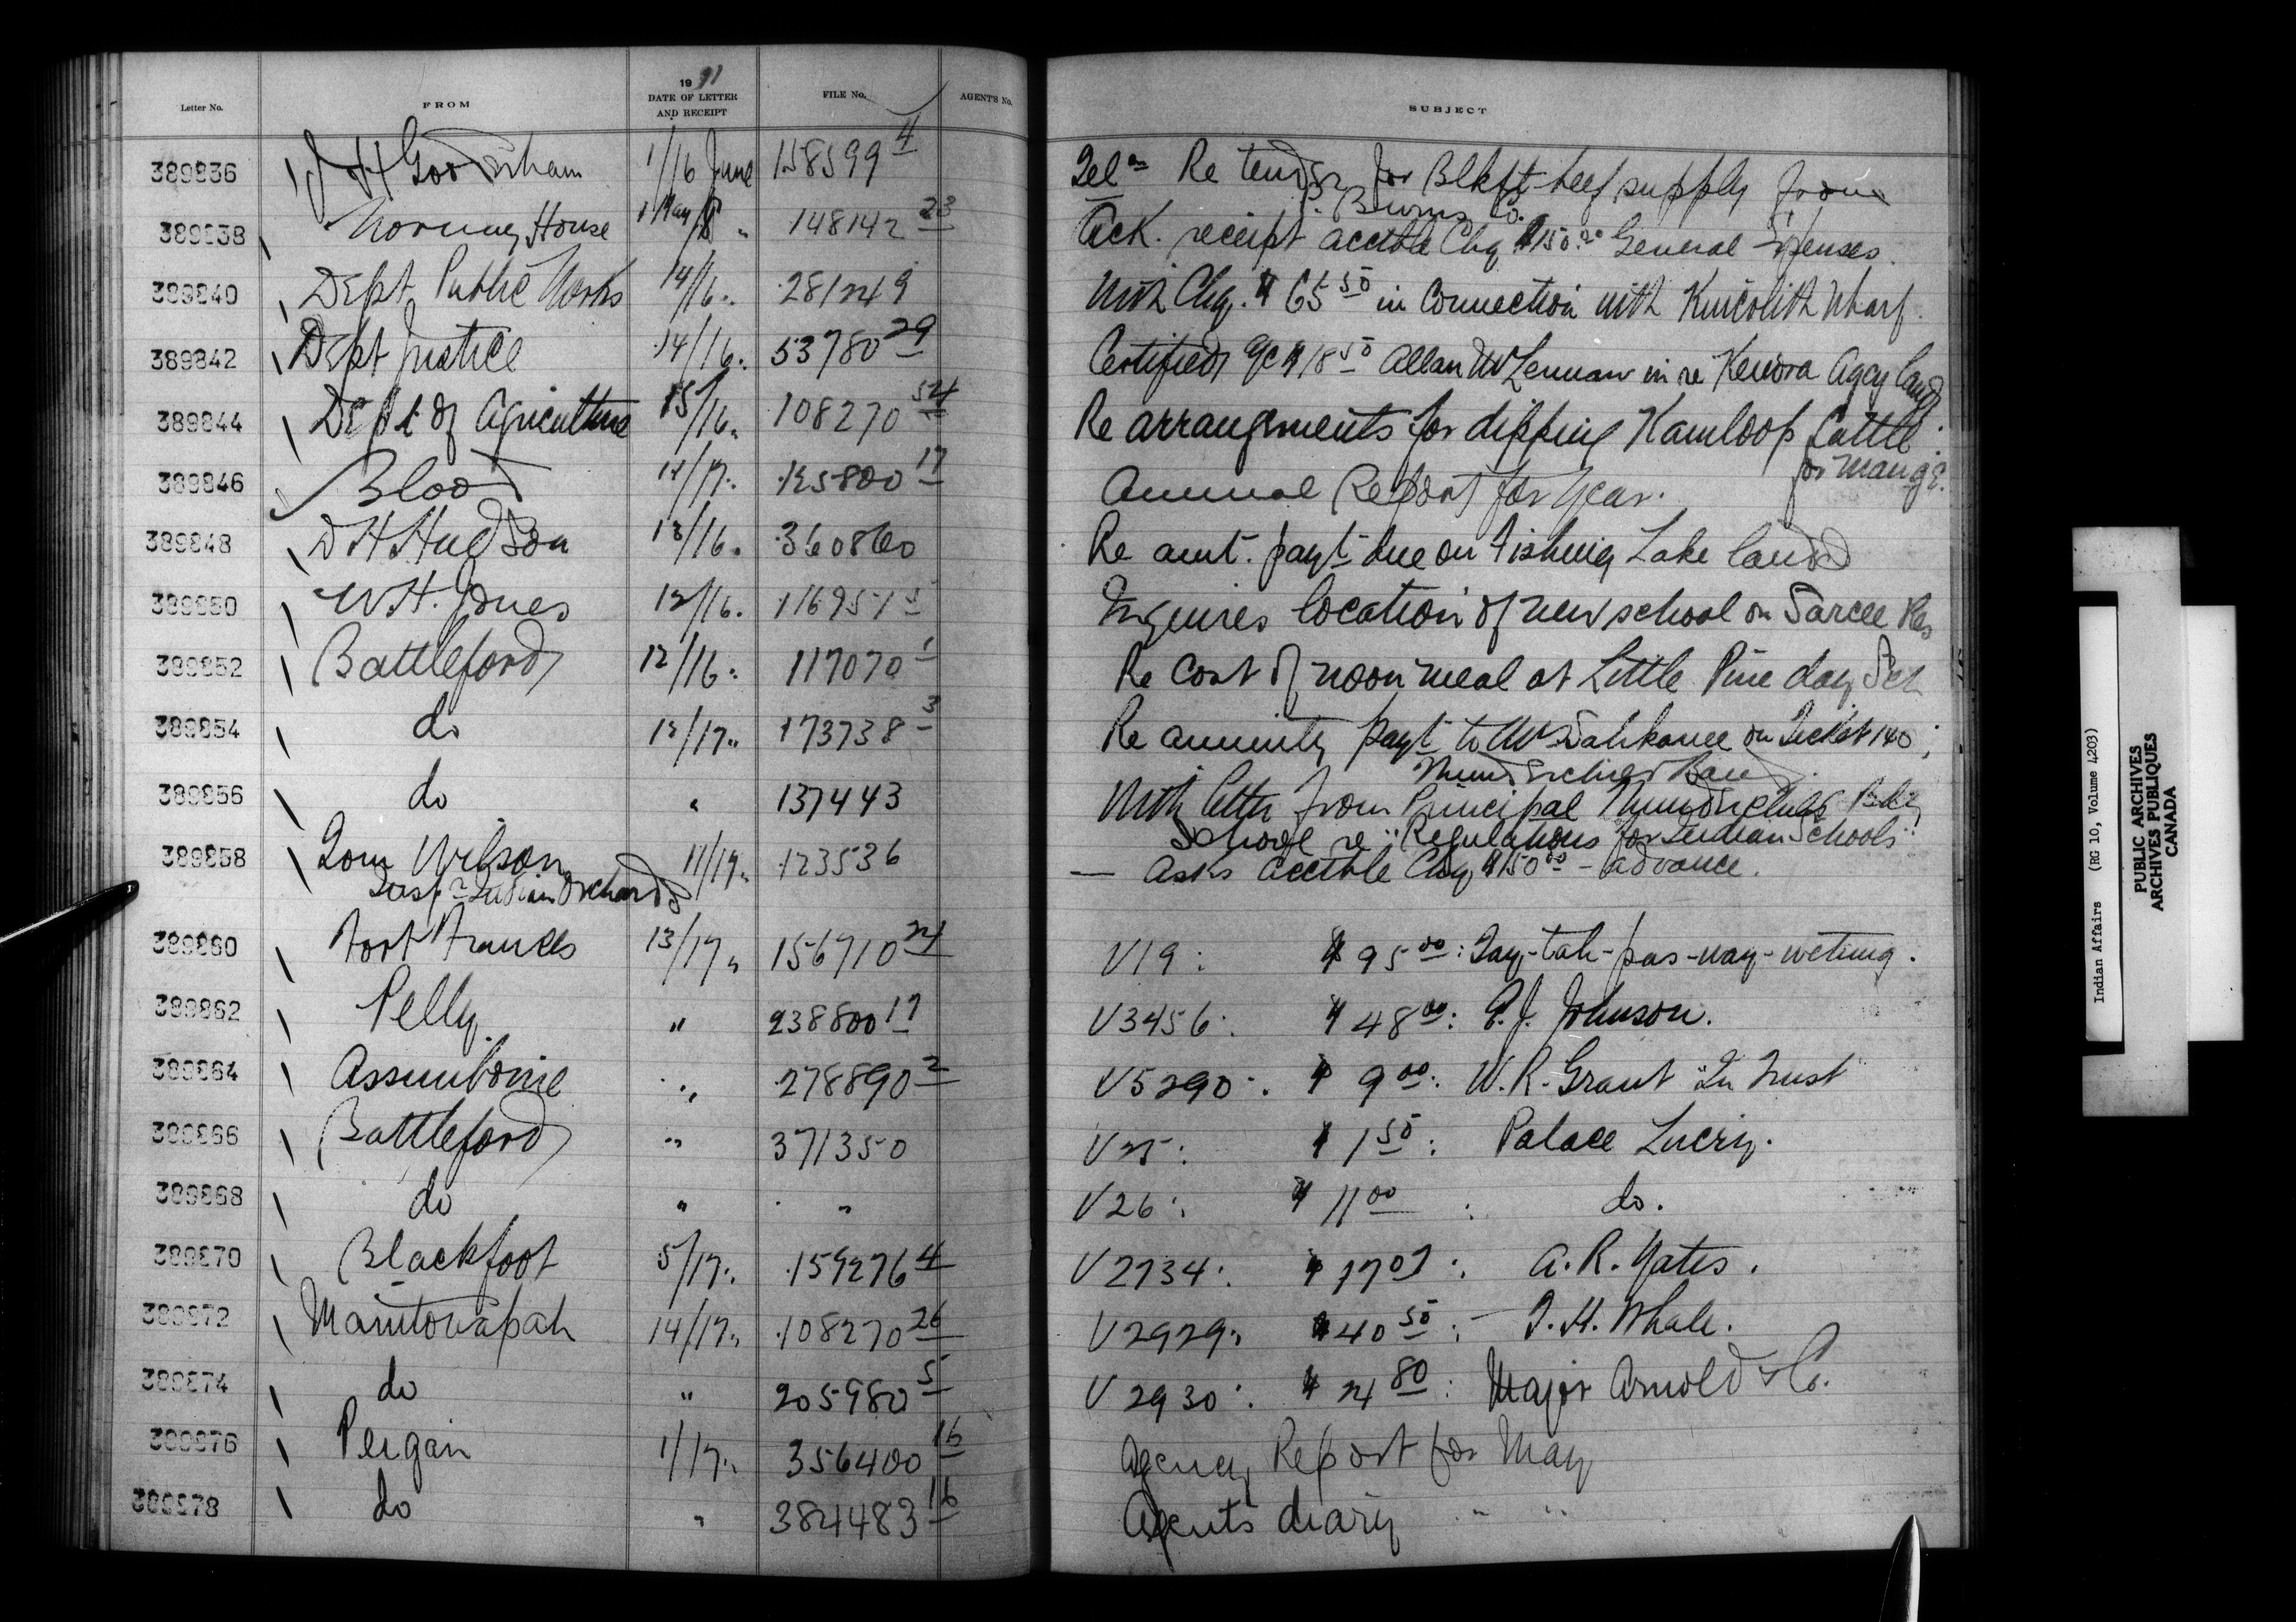 Letter No. FROM 1911 DATE OF LETTER AND RECEIPT FILE No. AGENT'S No. SUBJECT
389836 J H Gooderham 1/16 June 158599 4 Telm Re tender for Blkft beef supply from
P. Burns Co.
389838 Norway House 1 May/ " 148142 23 Ack. receipt acctble Chq $150.00 General Expenses.
389840 Dept Public Works 14/16 " 281249 With Chq. $65 50 in Connection with Kincolith Wharf.
389842 Dept Justice 14/16 " 53780 29 Certified a/c $18 50 Allan McLennan in re Kenora Agcy land
389844 Dept of Agriculture 15/16 " 108270 54 Re arrangements for dipping Kamloop Cattle
for Mange.
389846 Blood 12/17 " 125800 17 Annual Report for Year.
389848 D H Hudson 13/16 " 360860 Re amt. payt due on Fishing Lake land
389850 W H. Jones 12/16 " 116957 5 Inquires location of new school on Sarcee Res
389852 Battleford 12/16 " 117070 1 Re Cost of noon meal at Little Pine day Sch
389854 do 12/17 " 173738 3 Re annuity payt to on Ticket 140;
Thunderchild Band.
389856 do " 137443 With letter from Principal Thunderchilds Bdg
School re "Regulations for Indian Schools"
389858 Tom Wilson 11/17 " 123536 — Asks acctble Chq $150 00 - advance.
Inspr Indian Orchards
389860 Fort Frances 13/17 " 156710 24 V19: $95 00: Tay-tah-pas-way-wetung.
389862 Pelly " 238800 17 V3456: $48 00: E. J. Johnson.
389864 Assiniboine " 278890 2 V5290: $9 00: W. R. Grant "In Trust"
389866 Battleford " 371350 V25: $1 50: Palace Livery.
389868 do " " V26: $11 00: do.
389870 Blackfoot 5/17 " 159276 4 V2734: $17 07: A. R. Yates.
389872 Manitowapah 14/17 " 108270 26 V2929: $40 50: J. H. Whale.
389874 do " 205980 5 V2930: $24 80: Major Arnold & Co.
389876 Peigan 1/17 " 356400 16 Agency Report for May
389878 do " 384483 16 Agents diary " "
Indian Affairs (RG 10, Volume 4203)
PUBLIC ARCHIVES
ARCHIVES PUBLIQUES
CANADA